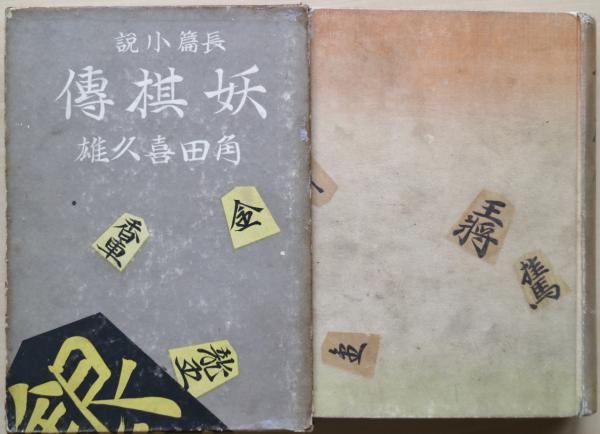 長篇小說
妖棋傳
角田喜久雄
金
香車
龍王
銀
王將
金